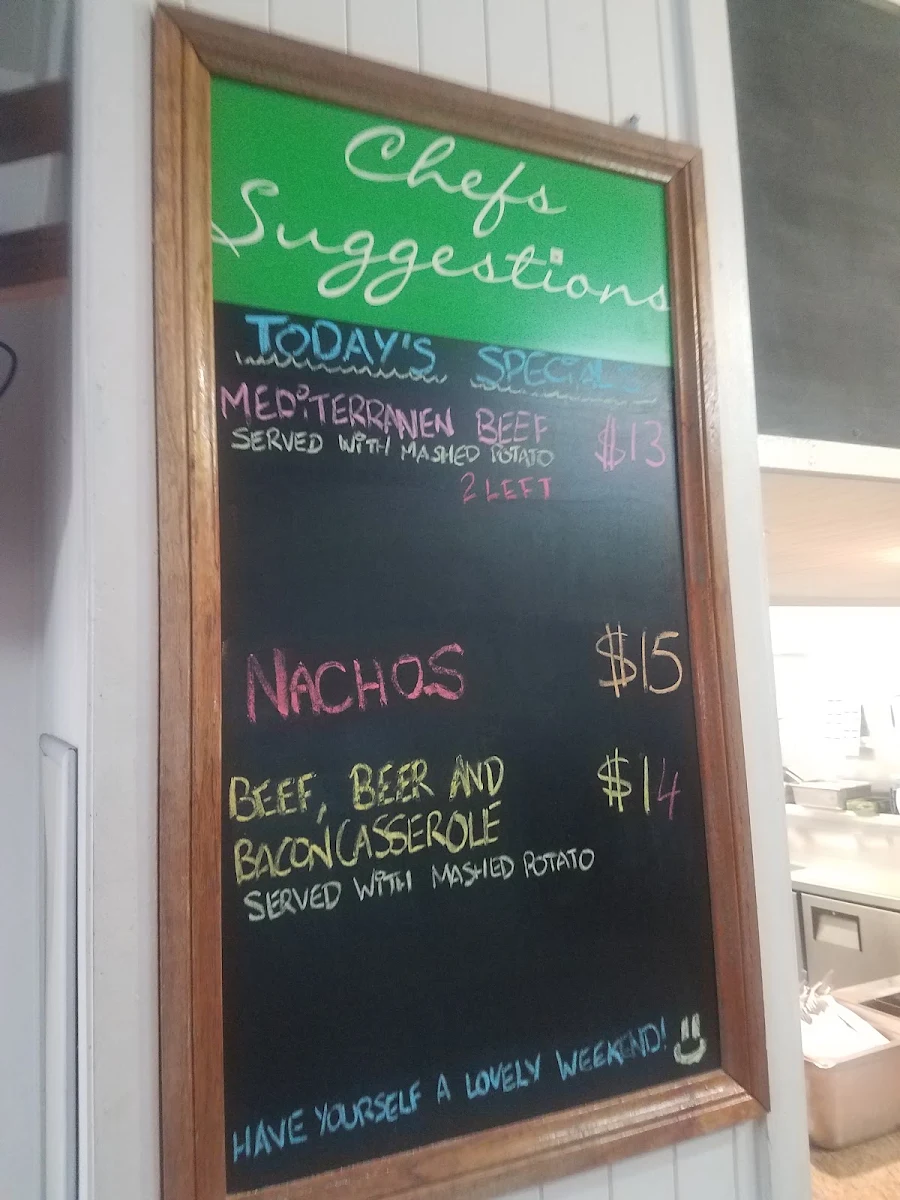 Chefs
Suggestions
TODAY'S SPECIALS
MEDITERRANEN BEEF $13
SERVED WITH MASHED POTATO
2 LEFT
NACHOS $15
BEEF, BEER AND $14
BACON CASSEROLE
SERVED WITH MASHED POTATO
HAVE YOURSELF A LOVELY WEEKEND!